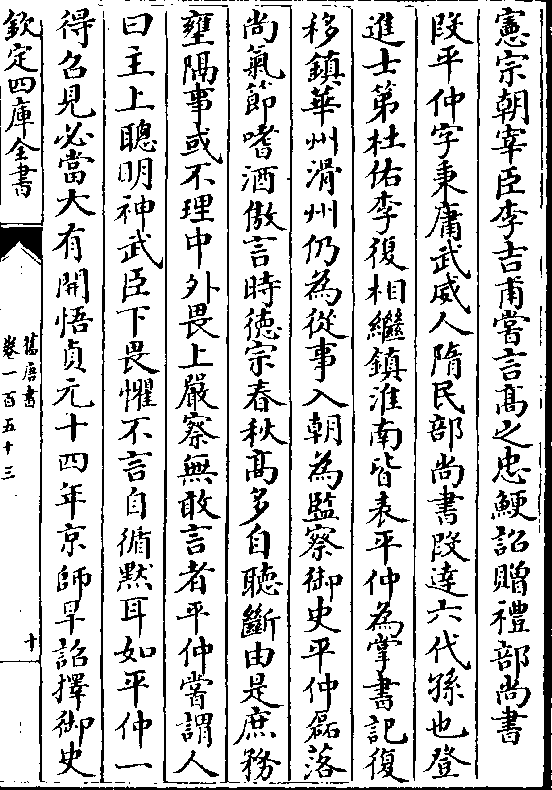 憲宗朝宰臣李吉甫嘗言髙之忠鯁詔贈禮部尚書
段平仲字秉庸武威人隋民部尚書段達六代孫也登
進士第杜佑李復相繼鎮淮南皆表平仲為掌書記復
移鎮華州滑州仍為從事入朝為監察御史平仲磊落
尚氣節嗜酒傲言時徳宗春秋髙多自聽斷由是庶務
壅隔事或不理中外畏上嚴察無敢言者平仲嘗謂人
曰主上聰明神武臣下畏懼不言自循黙耳如平仲一
得召見必當大有開悟貞元十四年京師旱詔擇御史
欽定四庫全書
舊唐書
卷一百五十三
十